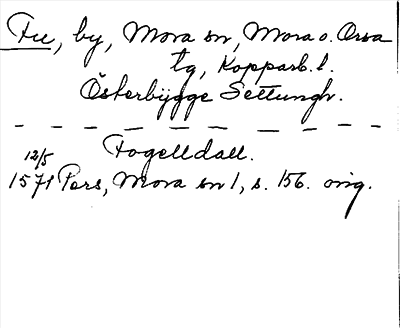 Fu, by, Mora sn, Mora o. Orsa
tg, Kopparb. l.
Österbygge Settungh.
Fogelldall.
12/5
1571 Pers, Mora sn 1, s. 156. orig.